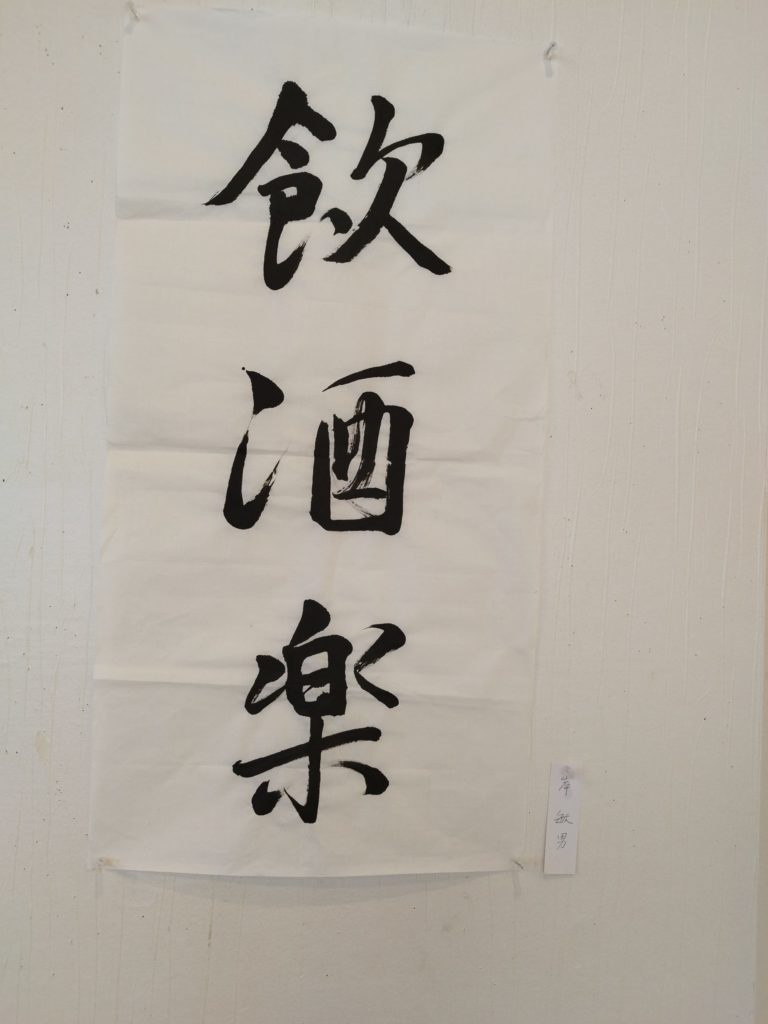 飲酒楽
岸敏男